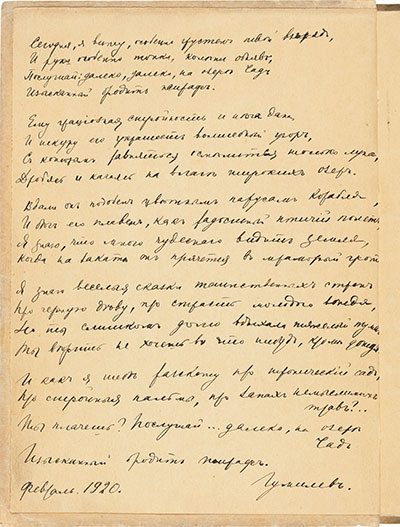 Сегодня, я вижу, особенно грустенъ твой взглядъ,
И руки особенно тонки, колѣни обнявъ,
Послушай: далеко, далеко, на озерѣ Чадъ
Изысканный бродитъ жирафъ.
Ему граціозная стройность и нѣга дана,
И шкуру его украшаетъ волшебный узоръ,
Съ которымъ равняться осмѣлится только луна,
Дробясь и качаясь на влагѣ широкихъ озеръ.
Вдали онъ подобенъ цвѣтнымъ парусамъ корабля,
И бѣгъ его плавенъ, какъ радостный птичій полетъ,
Я знаю, что много чудеснаго видитъ земля,
Когда на закатѣ онъ прячется въ мраморный гротъ
Я знаю веселыя сказки таинственныхъ странъ
Про черную дѣву, про страсть молодого вождя,
Но ты слишкомъ долго вдыхала тяжелый туманъ
Ты вѣрить не хочешь во что нибудь, кромѣ дождя
И какъ я тебѣ разскажу про тропическій садъ,
Про стройныя пальмы, про запахъ немыслимыхъ
травъ?..
Ты плачешь? Послушай... далеко, на озерѣ
Чадъ
Изысканный бродитъ жирафъ.
Февраль. 1920. Гумилевъ.